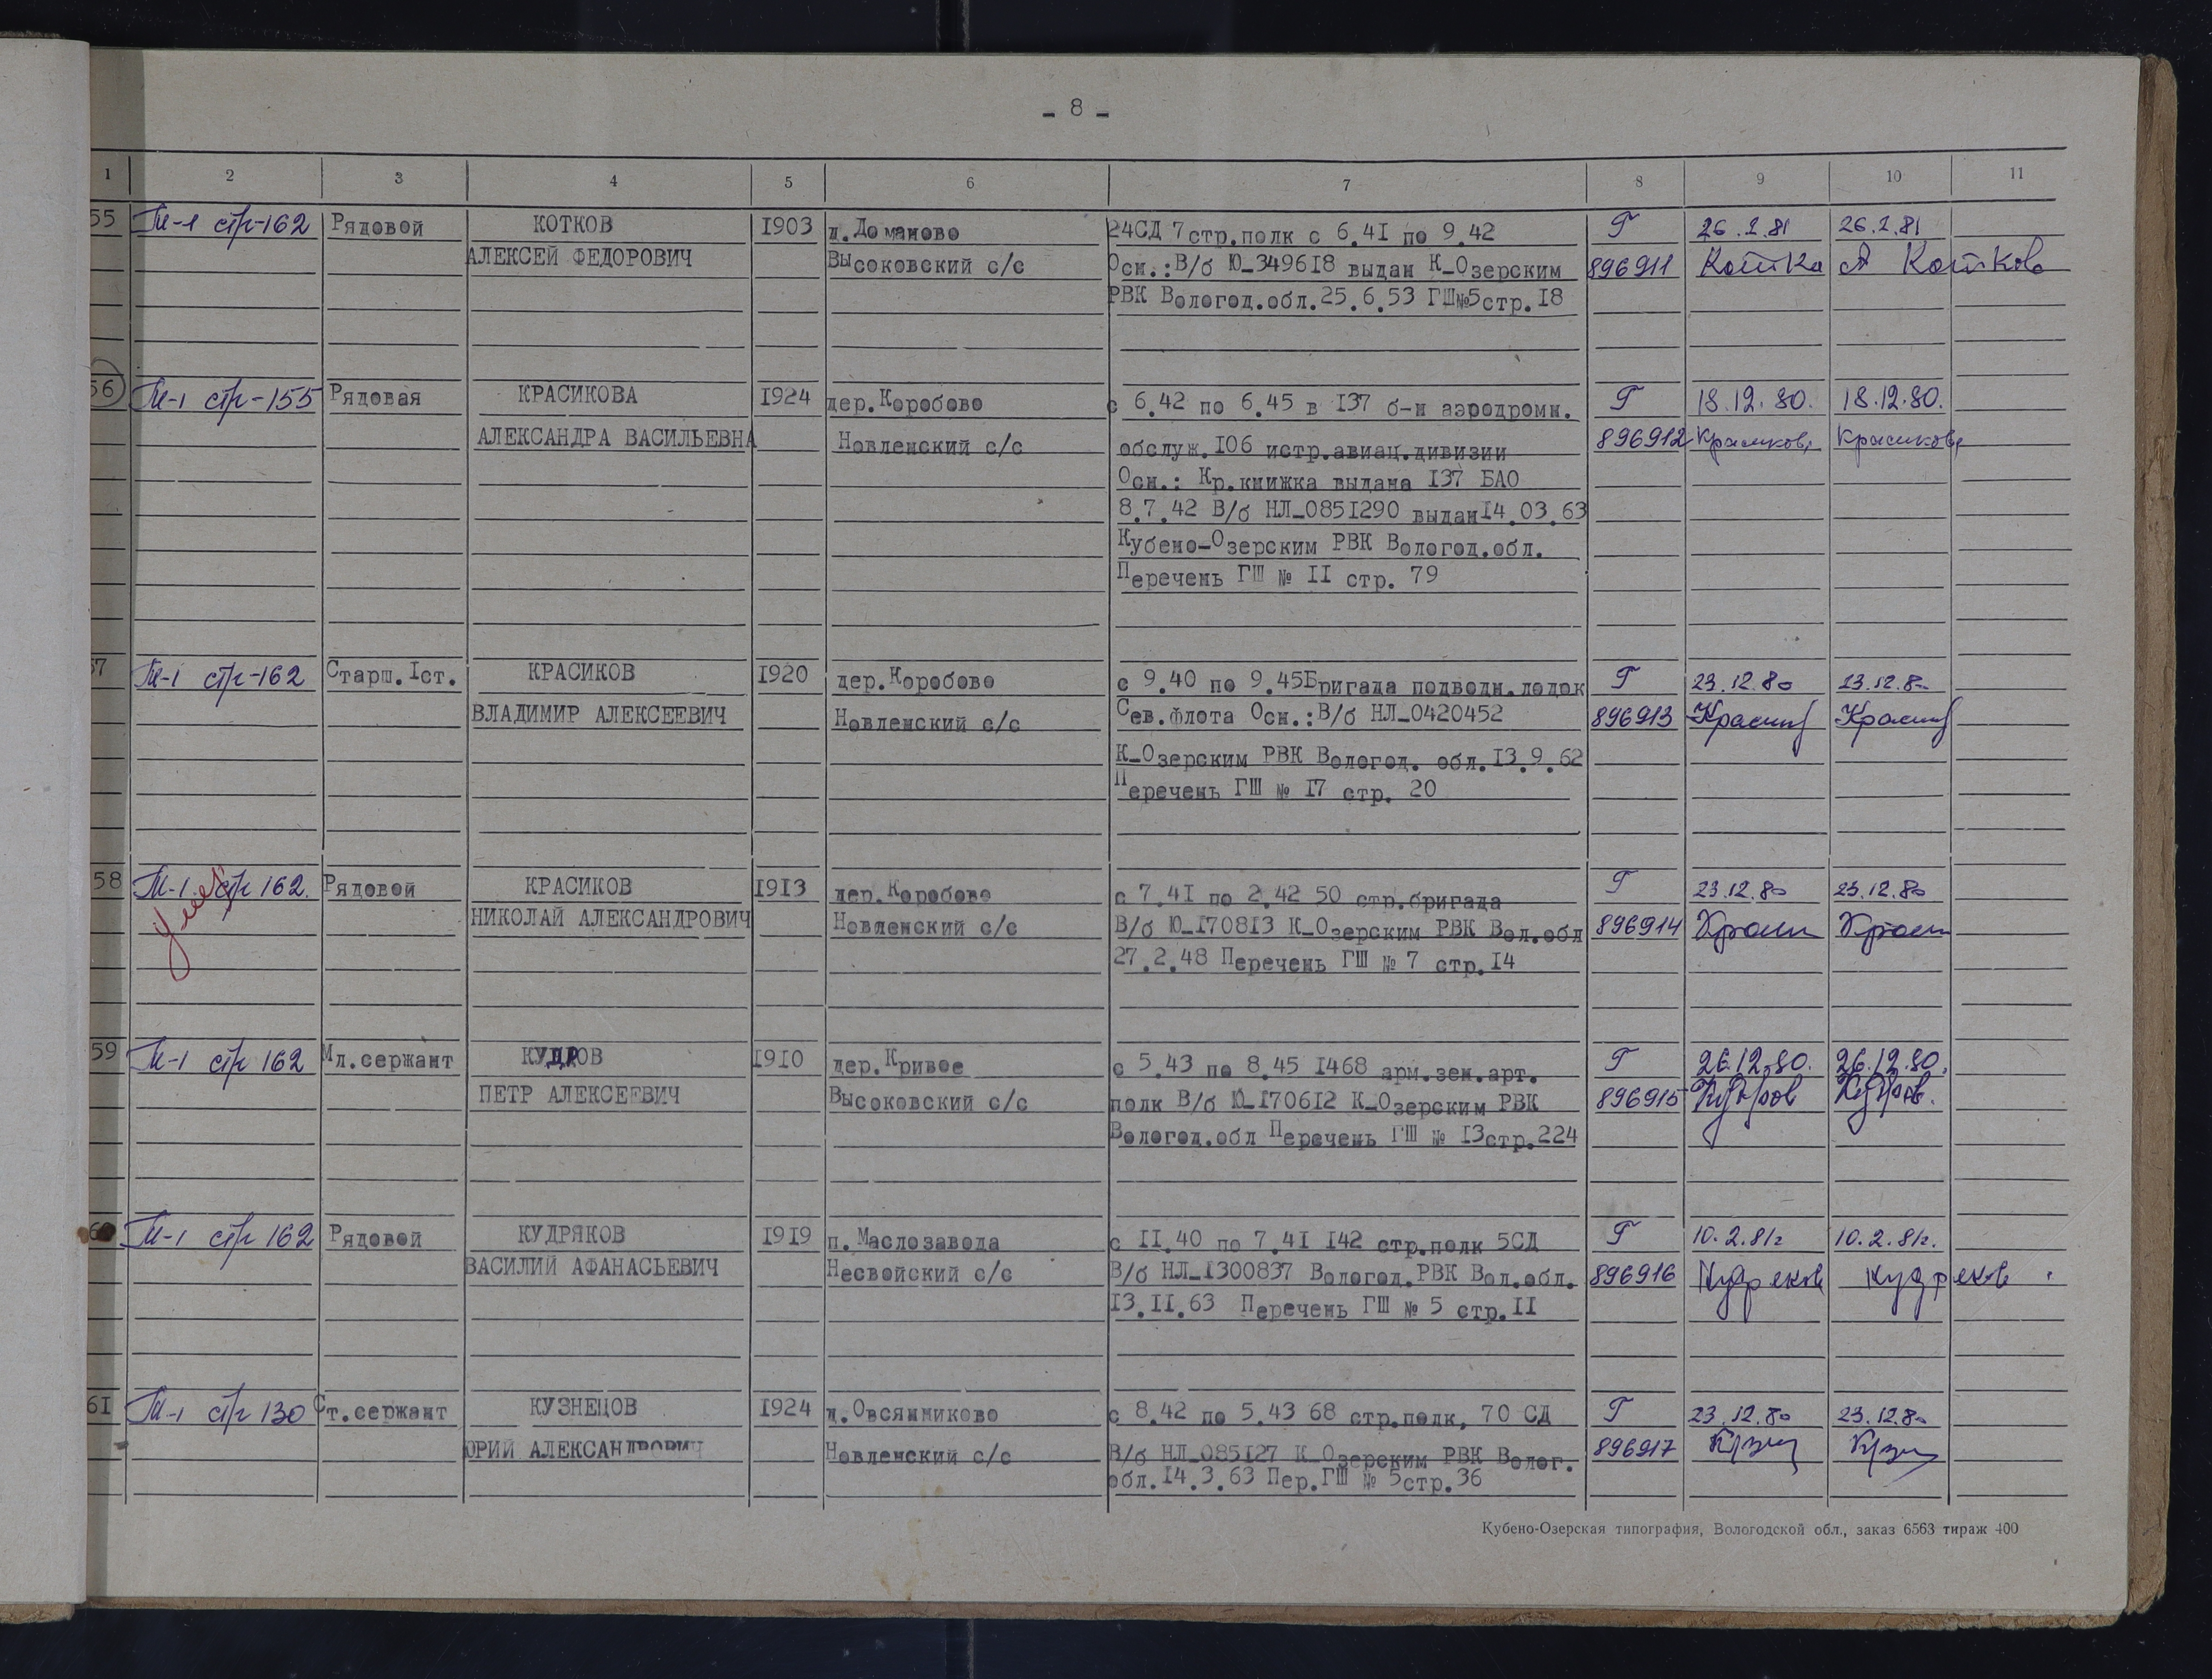 - 8 -
1 2 3 4 5 6 7 8 9 10 11
55 М-1 стр-162 Рядовой КОТКОВ 1903 д.Доманово 24СД 7стр.полк с 6.41 по 9.42 Г 26.2.81 26.2.81
АЛЕКСЕЙ ФЕДОРОВИЧ Высоковский с/с Осн.:В/б Ю-349618 выдан К-Озерским 896911 Котка А Коткова
РВК Вологод.обл.25.6.53 ГШ№5стр.18
56 М-1 стр-155 Рядовая КРАСИКОВА 1924 дер.Коробово с 6.42 по 6.45 в 137 б-н аэродромн. Г 18.12.80. 18.12.80.
АЛЕКСАНДРА ВАСИЛЬЕВНА Новленский с/с обслуж.106 истр.авиац.дивизии 896912 Красикова Красикова
Осн.: Кр.книжка выдана 137 БАО
8.7.42 В/б НЛ-0851290 выдан14.03.63
Кубено-Озерским РВК Вологод.обл.
Перечень ГШ № 11 стр. 79
57 М-1 стр-162 Старш.1ст. КРАСИКОВ 1920 дер.Коробово с 9.40 по 9.45Бригада подводн.лодок Г 23.12.80 23.12.80
ВЛАДИМИР АЛЕКСЕЕВИЧ Новленский с/с Сев.флота Осн.:В/б НЛ-0420452 896913
К-Озерским РВК Вологод. обл.13.9.62
Перечень ГШ № 17 стр. 20
58 М-1 стр 162. Рядовой КРАСИКОВ 1913 дер.Коробово с 7.41 по 2.42 50 стр.бригада Г 23.12.80 23.12.80
умер НИКОЛАЙ АЛЕКСАНДРОВИЧ Новленский с/с В/б Ю-170813 К-Озерским РВК Вол.обл 896914
27.2.48 Перечень ГШ № 7 стр.14
59 М-1 стр 162 Мл.сержант КУДРОВ 1910 дер.Кривое с 5.43 по 8.45 1468 арм.зен.арт. Г 26.12.80. 26.12.80.
ПЕТР АЛЕКСЕЕВИЧ Высоковский с/с полк В/б Ю-170612 К-Озерским РВК 896915 Кудров Кудров.
Вологод.обл Перечень ГШ № 13стр.224
60 М-1 стр 162 Рядовой КУДРЯКОВ 1919 п.Маслозавода с 11.40 по 7.41 142 стр.полк 5СД Г 10.2.81г 10.2.81г.
ВАСИЛИЙ АФАНАСЬЕВИЧ Несвойский с/с В/б НЛ-1300837 Вологод.РВК Вол.обл. 896916 Кудряков Кудряков
13.11.63 Перечень ГШ № 5 стр.11
61 М-1 стр 130 Ст.сержант КУЗНЕЦОВ 1924 д.Овсянниково с 8.42 по 5.43 68 стр.полк, 70 СД Г 23.12.80 23.12.80
ЮРИЙ АЛЕКСАНДРОВИЧ Новленский с/с В/б НЛ-085127 К-Озерским РВК Волог. 896917
обл.14.3.63 Пер.ГШ № 5стр.36
Кубено-Озерская типография, Вологодской обл., заказ 6563 тираж 400